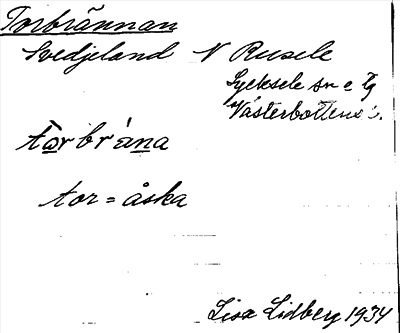 Torbrännan
Svedjeland N Rusele
Lycksele sn o Tg
Västerbottens l.
tòrbrä́na
tor = åska
Lisa Lidberg 1934